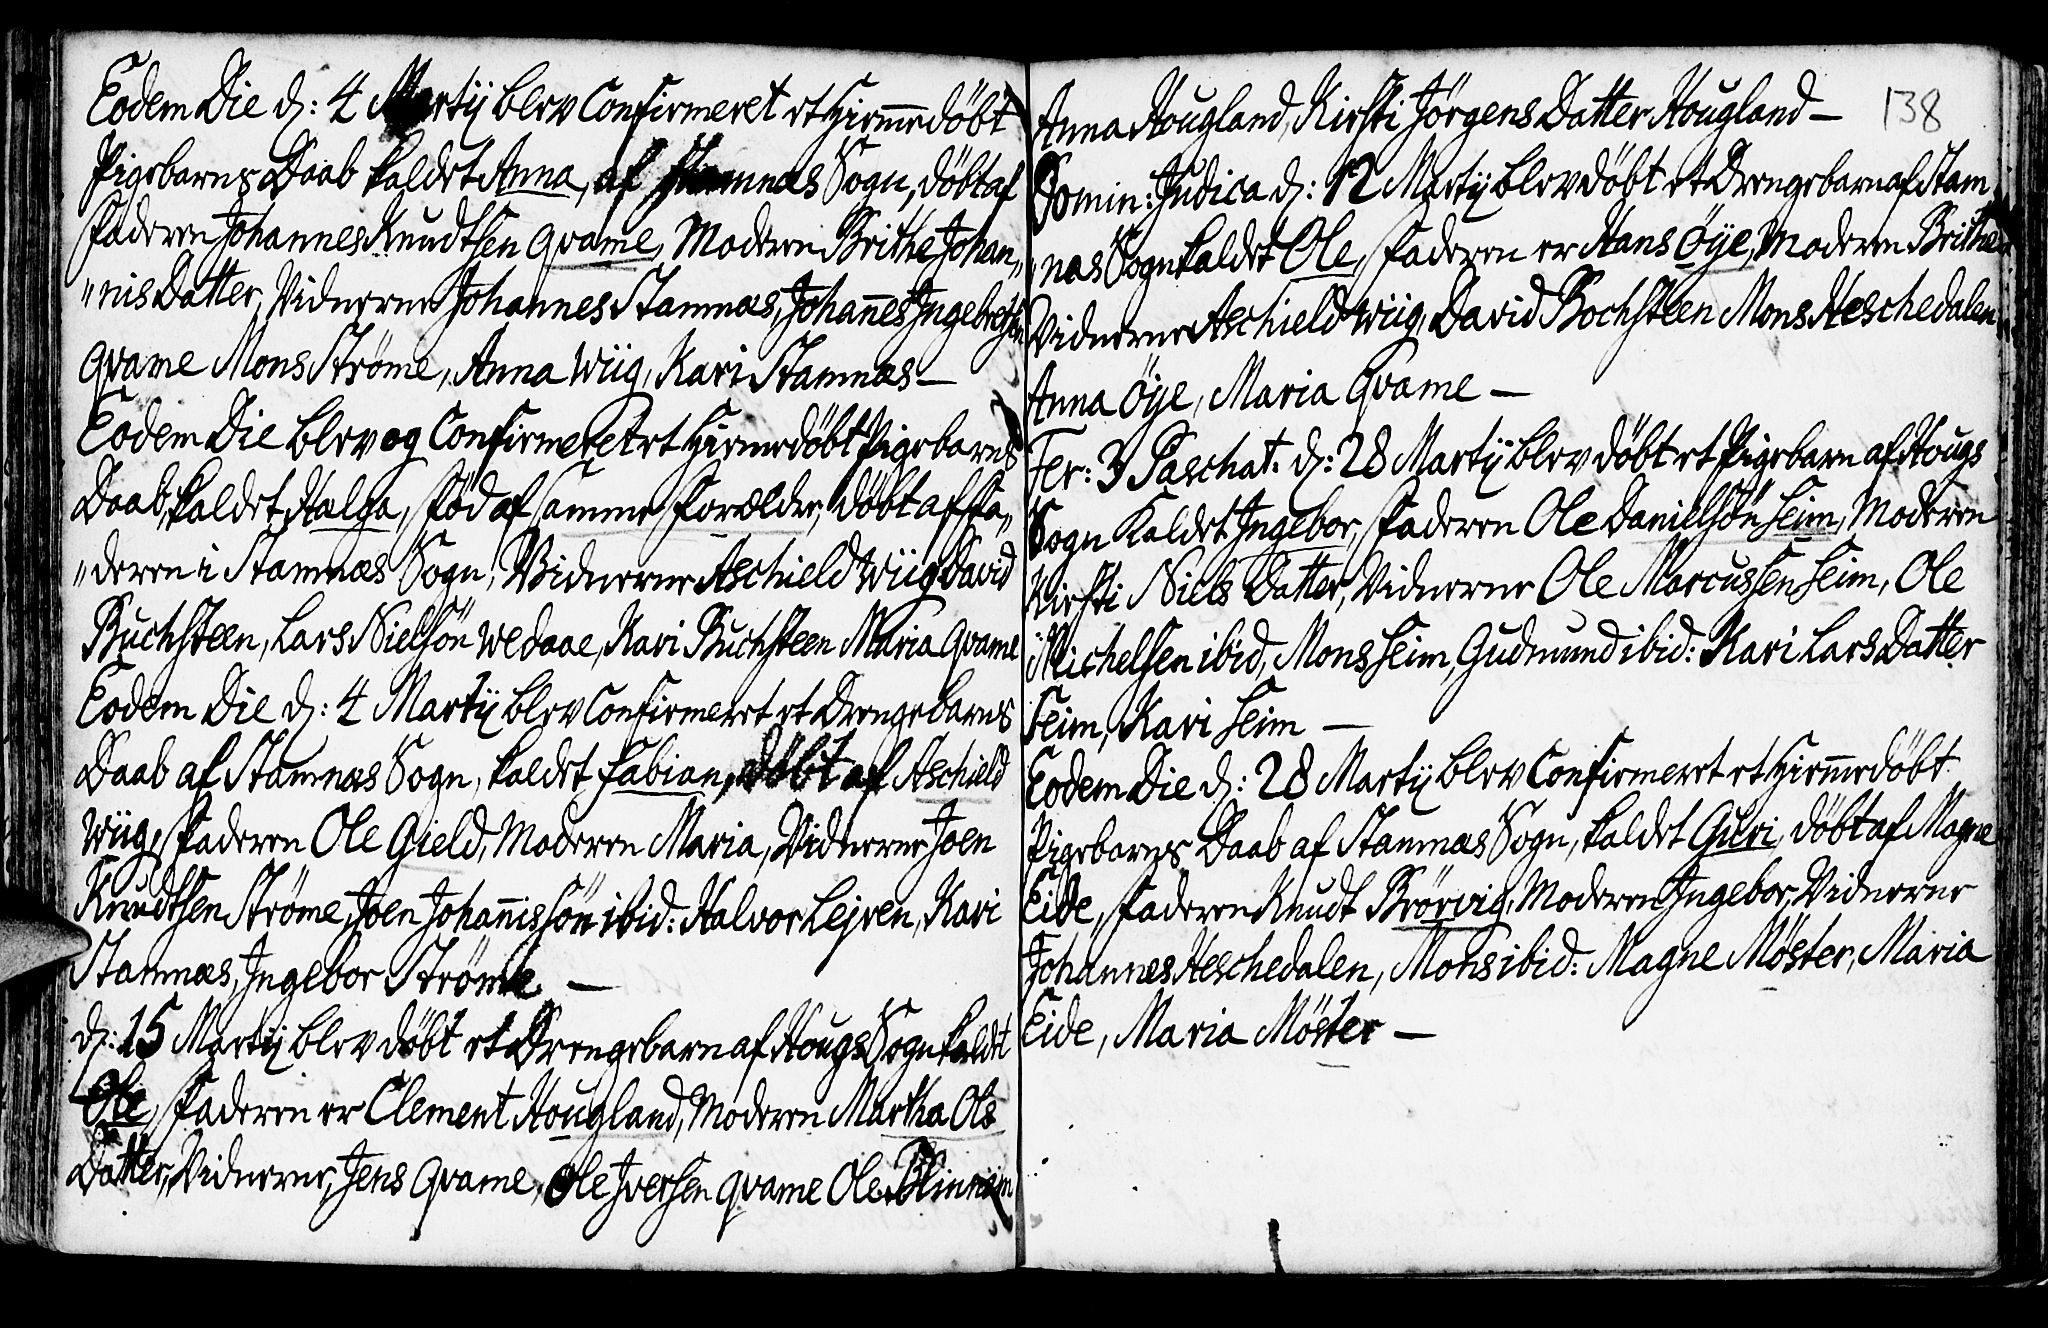 Eodem Die d: 4 Martij blev Confirmeret et Hiemmedöbt
Pigebarns Daab kaldet Anna, af Stamnæs Sogn, döbt af
Faderen Johannes Knudtsen Qvame, Moderen Brithe Johan„
„nis Datter, Vidnerne Johannes Stamnæs, Johan̄es Ingebretsen
Qvame Mons Ströme, Anna Wiig, Kari Stamnæs —
Eodem Die blev og Confirmeret et Hiemmedöbt Pigebarns
Daab, kaldet Halga, föd af samme Forældre, döbt af Fa„
„deren i Stamnæs Sogn, Vidnerne Aschield Wiig David
Buchsteen, Lars Nielsön Wedaae, Kari Buchsteen Maria Qvame
Eodem Die d: 4 Martij blev Confirmeret et Drengebarns
Daab af Stamnæs Sogn, kaldet Fabian, döbt af Aschield
Wiig, Faderen Ole Gield, Moderen Maria, Vidnerne Joen
Knudtsen Ströme, Joen Johan̄issön ibid: Halvor Lejren, Kari
Stamnæs, Ingebor Ströme —
d: 15 Martij blev döbt et Drengebarn af Hougs Sogn kaldet
Ole, Faderen er Clement Hougland, Moderen Martha Ols
Datter, Vidnerne, Jens Qvame, Ole Iversen Qvame Ole Blinheim
138
Anna Hougland, Kirsti Jörgens Datter Hougland —
Domin: Judica d: 12 Martij blev döbt et Drengebarn af Stam
„næs Sogn kaldet Ole, Faderen er Hans Öye, Moderen Brithe
Vidnerne Aschield Wiig, David Bochsteen Mons Heschedalen
Anna Öye, Maria Qvame —
Fer: 3 Paschat: d: 28 Martij blev döbt et Pigebarn af Hougs
Sogn Kaldet Ingebor, Faderen Ole Danielsön Seim, Moderen
Kirsti Niels Datter, Vidnerne Ole Marcussen Seim, Ole
Michelsen ibid, Mons Seim, Gudmund ibid: Kari Lars Datter
Seim, Kari Seim —
Eodem Die d: 28 Martij blev Confirmeret et Hiemmedöbt
Pigebarns Daab af Stamnæs Sogn, kaldet Guri, döbt af Magne
Eide, Faderen Knudt Brörvig, Moderen Ingebor, Vidnerne
Johannes Heschedalen, Mons ibid: Magne Möster, Maria
Eide, Maria Möster —